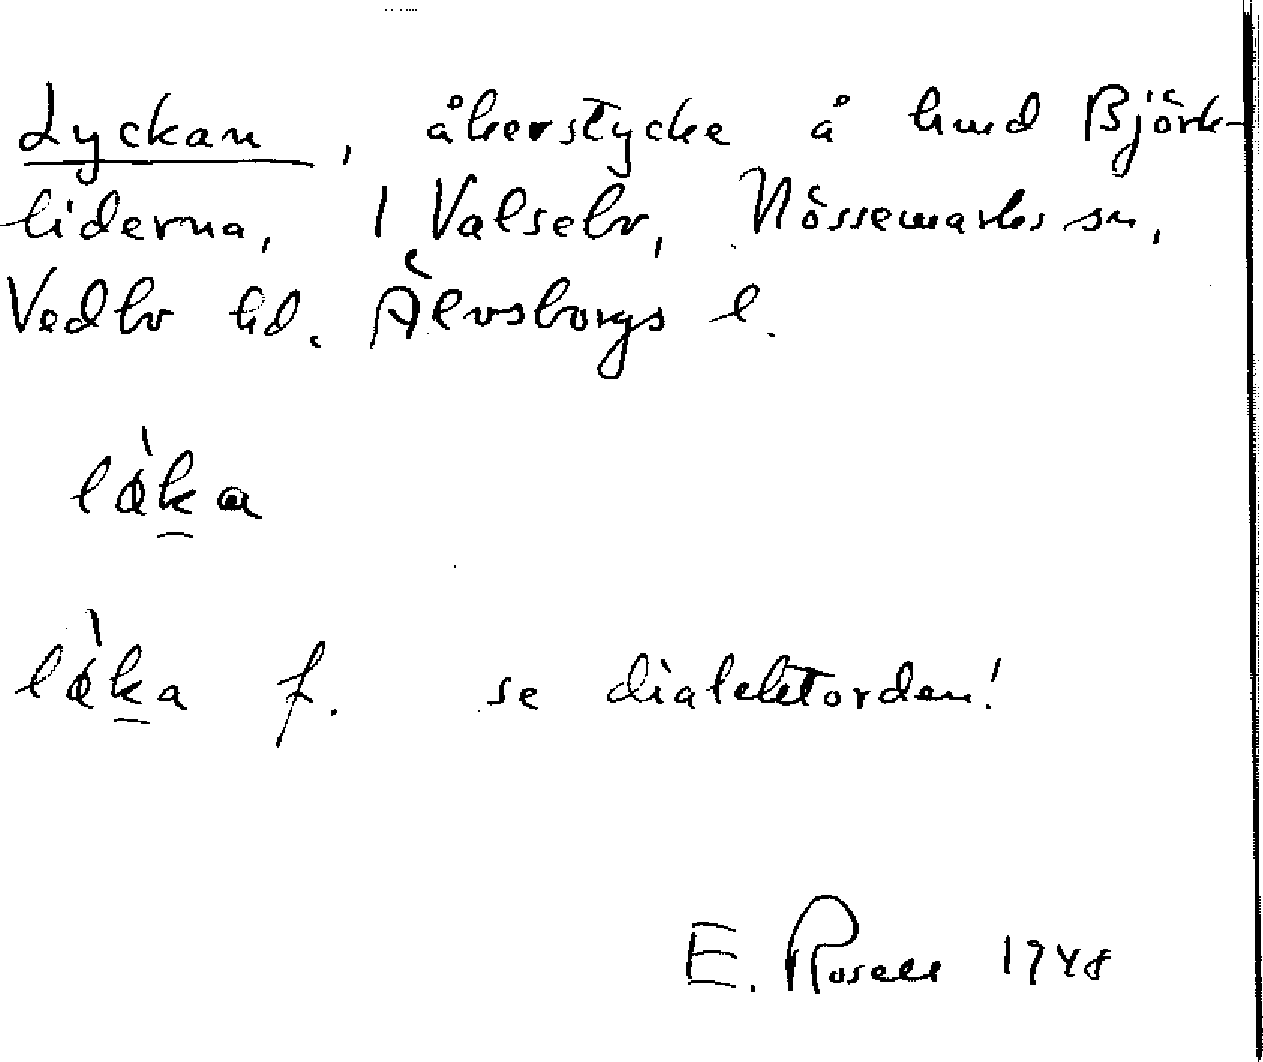 Lyckan, åkerstycke å hmd Björk-
liderna, 1 Valsebo, Nössemarks sn,
Vedbo hd. Älvsborgs l.
lø̀ka
lø̀ka f. se dialektorden!
E. Rosell 1948